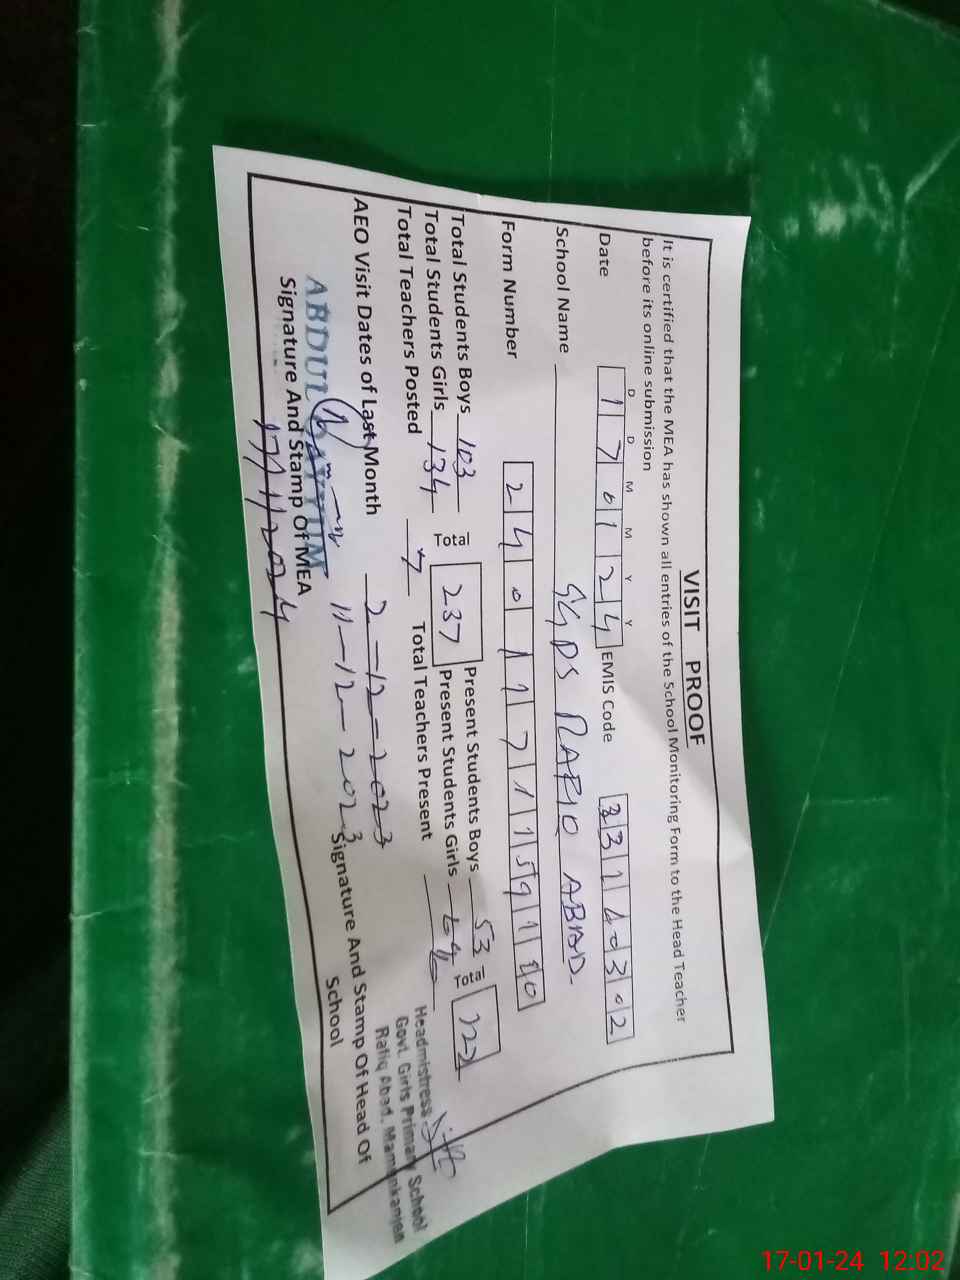 VISIT PROOF
It is certified that the MEA has shown all entries of the School Monitoring Form to the Head Teacher
before its online submission
D D M M Y Y
Date 17 01 24 EMIS Code
School Name GGPS RAFIQ ABAD
Form Number
Total Students Boys 103 Total 237 Present Students Boys 53
Total Students Girls 134 Present Students Girls
Total Teachers Posted 7 Total Teachers Present
AEO Visit Dates of Last Month 2-12-2023
11-12-2023
ABDUL QAYYUM
Signature And Stamp Of MEA
17/1/2024
Headmistress
Govt. Girls Primary School
Rafiq Abad, Mamonkanjan
Signature And Stamp Of Head Of
School
17-01-24 12:02